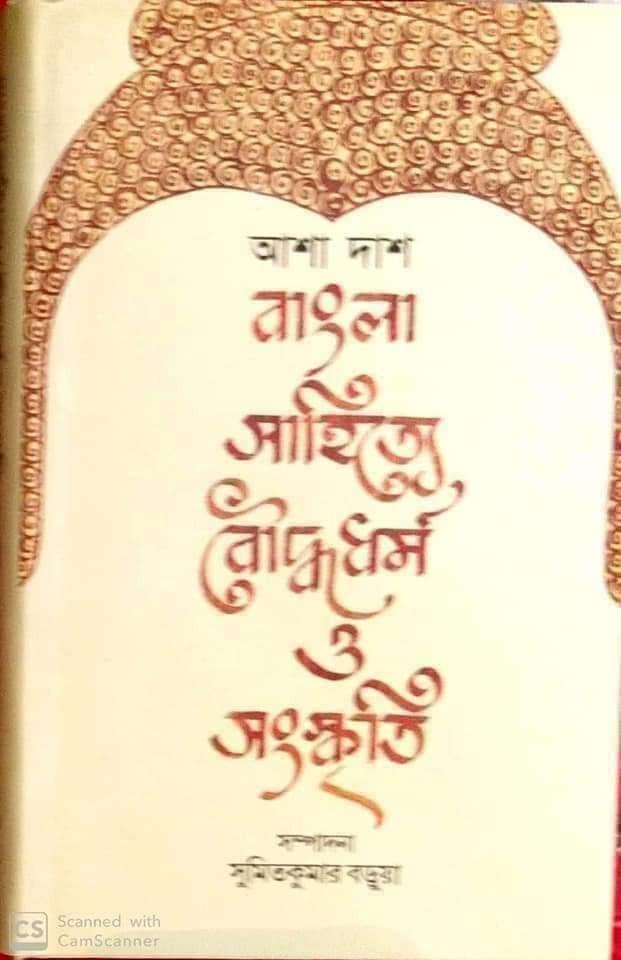 আশা দাশ
বাংলা
সাহিত্যে
বৌদ্ধধর্ম
ও
সংস্কৃতি
সম্পাদনা
সুমিতকুমার বড়ুয়া
CS Scanned with
CamScanner